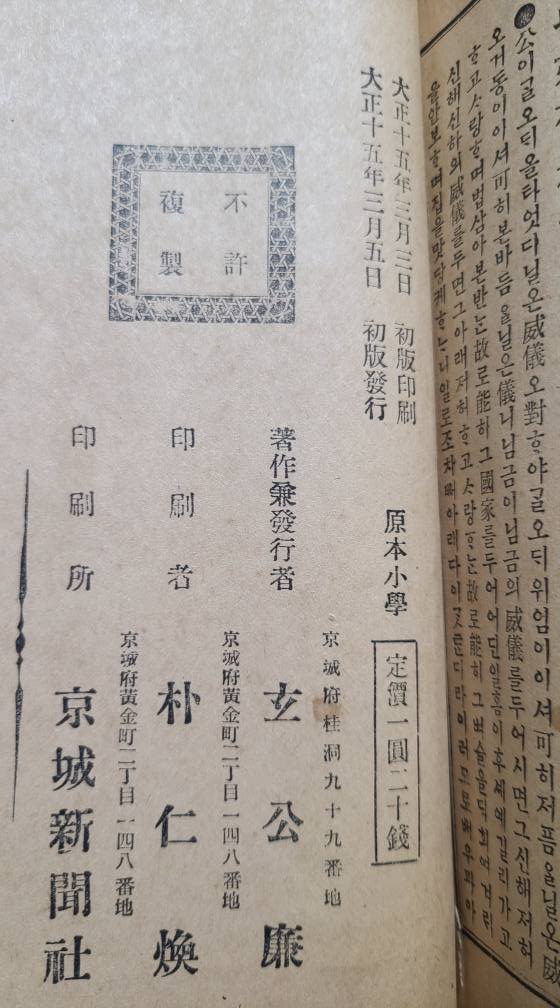 ●公이ᄀᆞᆯ오ᄃᆡ올타엇디닐온威儀오對ᄒᆞ야ᄀᆞᆯ오ᄃᆡ위엄이이셔可히저픔을닐온威
오거동이이셔可히본바듬을닐은儀니님금이님금의威儀를두어시면그신해저허
ᄒᆞ고ᄉᆞ랑ᄒᆞ며법삼아본반ᄂᆞᆫ故로能히그國家를두어어딘일홈이후세예길리가고
신해신하의威儀를두면그아래저허ᄒᆞ고ᄉᆞ랑ᄒᆞᄂᆞᆫ故로能히그벼슬을딕희여겨레
을안보ᄒᆞ며집을맛당케ᄒᆞᄂᆞ니일로조차ᄡᅥ아래다이
大正十五年三月三日 初版印刷
大正十五年三月五日 初版發行
原本小學
定價一圓二十錢
不許
複製
著作兼發行者
京城府桂洞九十九番地
玄公廉
印刷者
京城府黃金町二丁目一四八番地
朴仁煥
印刷所
京城府黃金町二丁目一四八番地
京城新聞社